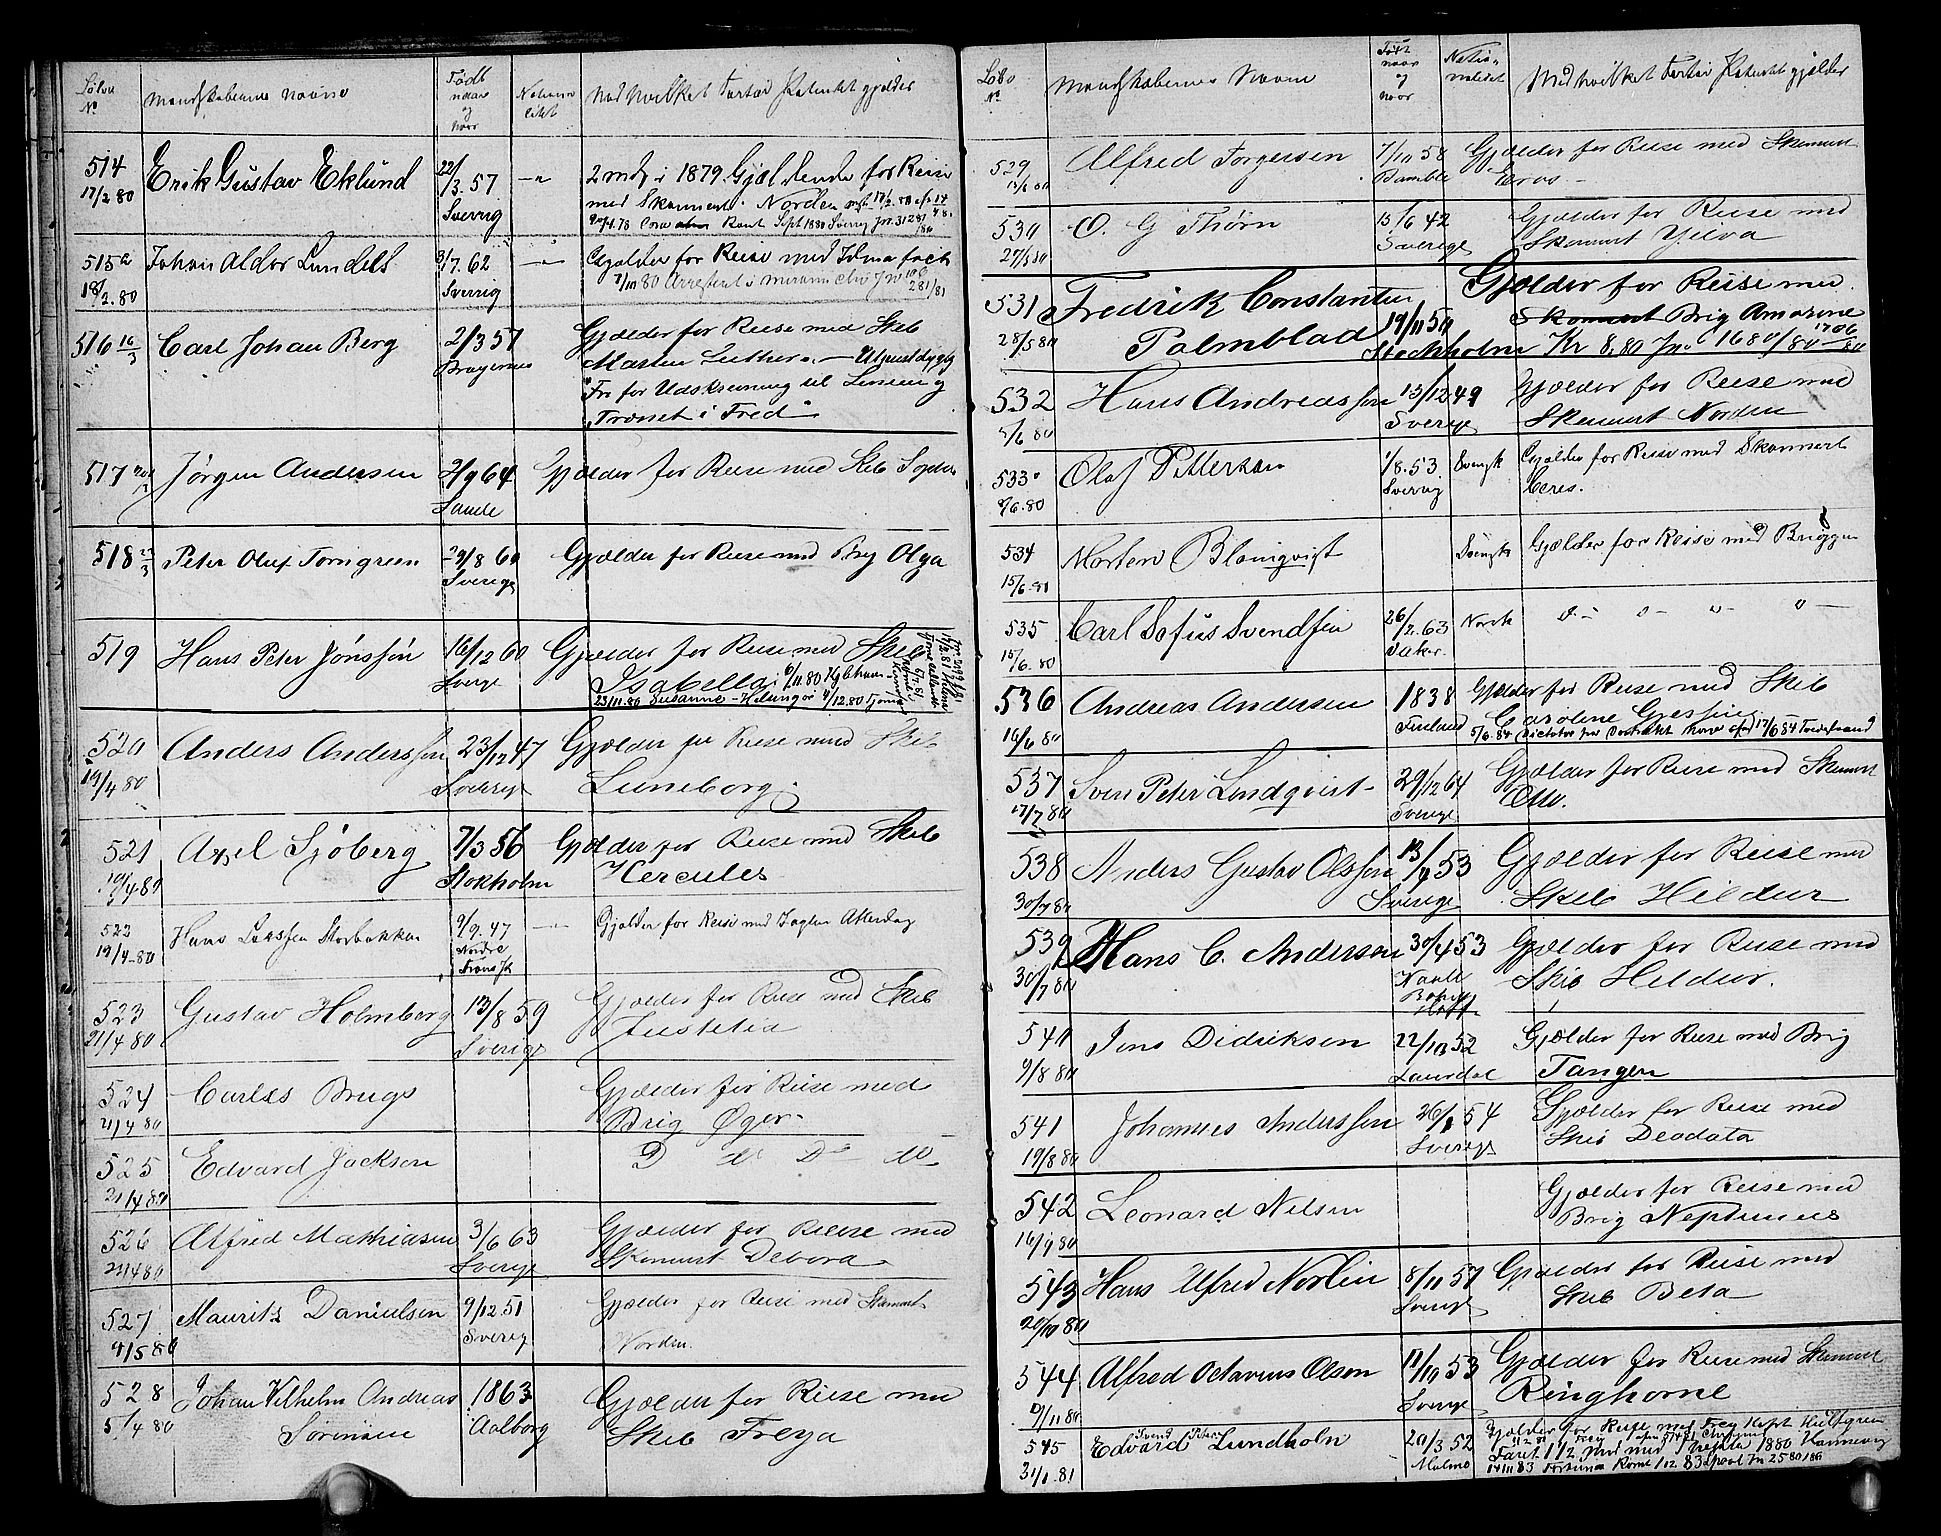 Løbe Nº
Mandskabernes navne
Født naar og hvor
Nationalitet
Med hvilket Fartøi Patentet gjælder
514 17/2 80 Erik Gustav Eklund 22/3.57 Sverrig
2 mdr i 1879. Gjældende for Reise
med Skonnert Norden
515 18/2.80 Johan Aldor Lundell 3/7.62 Sverrig
Gjælder for Reise med
7/10 80 Arrestent
516 16/3 Carl Johan Berg 2/3 57 Bragernes
Gjælder for Reise med Skib
Martin Luther
Fri for Udskrivning til Linien og
Trænet i Fred
517 Jørgen Andersen 2/9 64 Sande
Gjælder for Reise med Skib
518 Peter Oluf Torngreen 29/8 60 Sverige
Gjælder for Reise med Brig Olga
519 Hans Peter Jönssön 16/12 60 Sverge
Gjælder for Reise med Skib
Isabella 6/11.80
23/11.80 Susanne - Helsingør 4/12.80
520 19/4 80 Anders Andersson 23/12 47 Sverige
Gjælder for Reise med Skib
Luneborg
521 19/4.80 Axel Sjöberg 7/3 56 Stokholm
Gjælder for Reise med Skib
Hercules
522 19/4-80 Hans Larssen Storbakken 9/9.47 Nordre
Gjælder for Reise med Jagten
523 21/4 80 Gustav Holmberg 13/8 59 Sverige
Gjælder for Reise med Skib
Justetia
524 21/4 80 Carles Brugs
Gjælder for Reise med
Brig Øger
525 21/4 80 Edvard Jackson
D do Do do
526 21/4 80 Alfred Mathiasen 3/6 63 Sverige
Gjælder for Reise med
Skonnert Debora
527 4/5 80 Mauritz Danielsen 9/12.51 Sverig
Gjælder for Reise med Skonnert
Norden.
528 5/4 80 Johan Vilhelm Andreas Sørensen 1863 Aalborg
Gjælder for Reise med
Skib Freya
Løbe Nº
Mandskabernes Navne
Født naar og hvor
Nationalitet
Med hvilket Fartøi Patentet gjælder
529 Alfred Torgersen 7/10 58 Bamble
Gjælder for Reise med Skonnert
Eros
530 27/5 80 O. G Thörn 15/6 42 Sverige
Gjælder for Reise med
Skonnert Ydva
531 28/5 80 Fredrik Constantin Palmblad 19/11 54 Stockholm
Gjælder for Reise med
Skonnert Brig Amazone
Kr 8.80 Jno 1680/80 1706/80
532 5/6 80 Hans Andreassen 13/12 49 Sverige
Gjælder for Reise med
Skonnert Norden
533 Olof Petterson 1/8.53 Sverrig Svensk
Gjælder for Reise med Skonnert
Ceres.
534 15/6.80 Morten Blomqvist Svensk
Gjælder for Reise med Briggen
535 15/6.80 Carl Sofus Svendsen 26/2.63 Norsk
536 16/6 80 Andreas Andersen 1838 Finland
Gjælder for Reise med Skib
Caroline
537 17/7 80 Sven Peter Lindqvist 29/12 64 Sverige
Gjælder for Reise med Skonnert
Otto.
538 30/7 80 Anders Gustav Olsson 13/4 53 Sverige
Gjælder for Reise med
Skib Hildur
539 30/7 80 Hans C. Anderson 30/4 53
Gjælder for Reise med
Skib Hildur.
540 9/8 80 Jens Didriksen 22/10 52 Laurdal
Gjælder for Reise med Brig
Tangen
541 19/8 80 Johannes Andersson 26/1 54 Sverige
Gjælder for Reise med
Skib Deodata
542 16/9 80 Leonard Nilsen
Gjælder for Reise med
Brig Neptunus
543 20/10 80 Hans Alfred Norlin 8/11 57 Sverige
Gjælder for Reise med
Skib Beta
544 Alfred Octavius Olson 11/10 53 Sverige
Gjælder for Reise med Skonnert
Ringhorne
545 Edvard Svend Peter Lundholm 20/3 52 Malmø
Gjælder for Reise med Frey Kapt Hultgren
Faret 1 1/2 Mnd med 1880
14/11 83 Fortuna